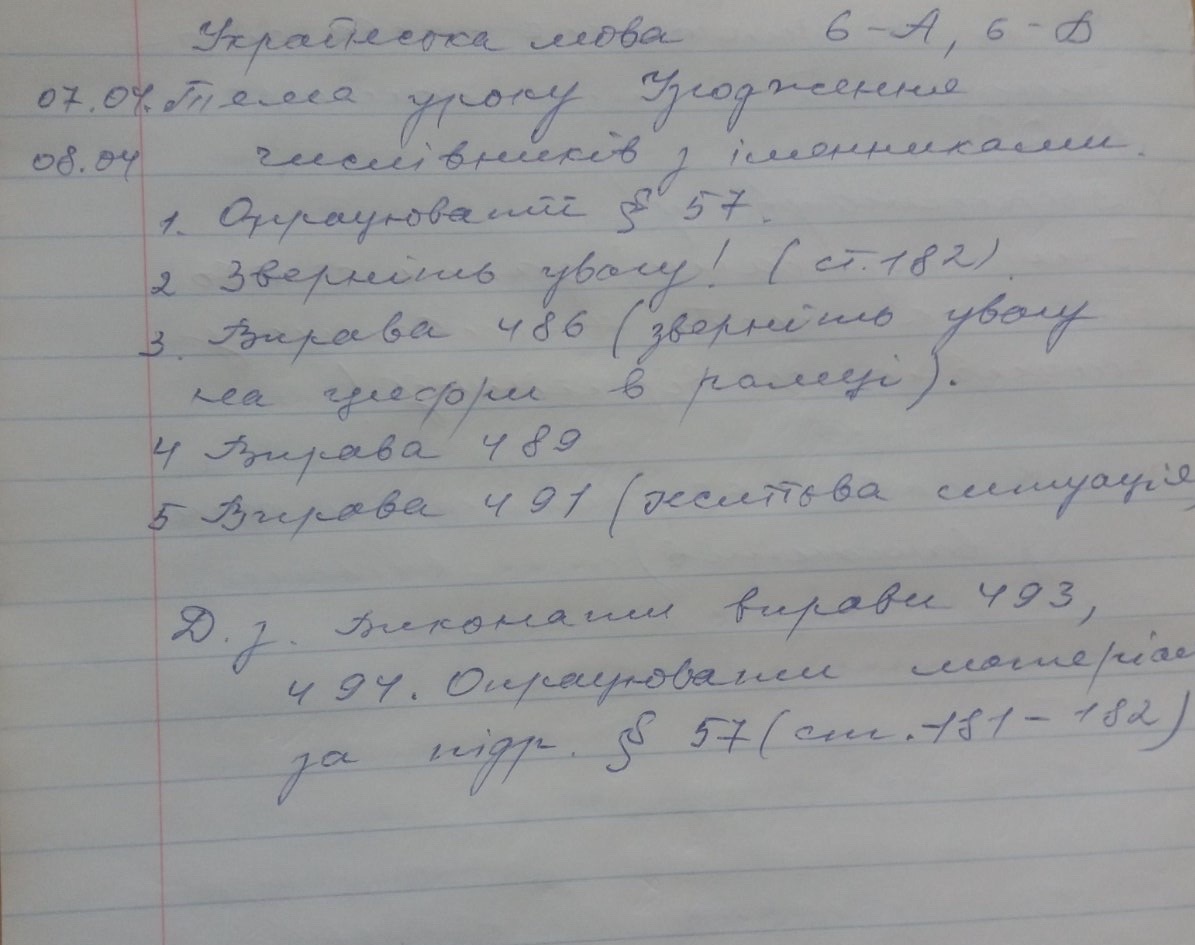 Українська мова 6-А, 6-Д
07.04. Тема уроку Узгодження
08.04 числівників з іменниками.
1. Опрацювати § 57.
2 Зверніть увагу! (ст. 182).
3. Вправа 486 (зверніть увагу
на цифри в рамці).
4 Вправа 489
5 Вправа 491 (життєва ситуація
Д. з. Виконати вправи 493,
494. Опрацювати матеріал
за підр. § 57 (ст. 181-182)